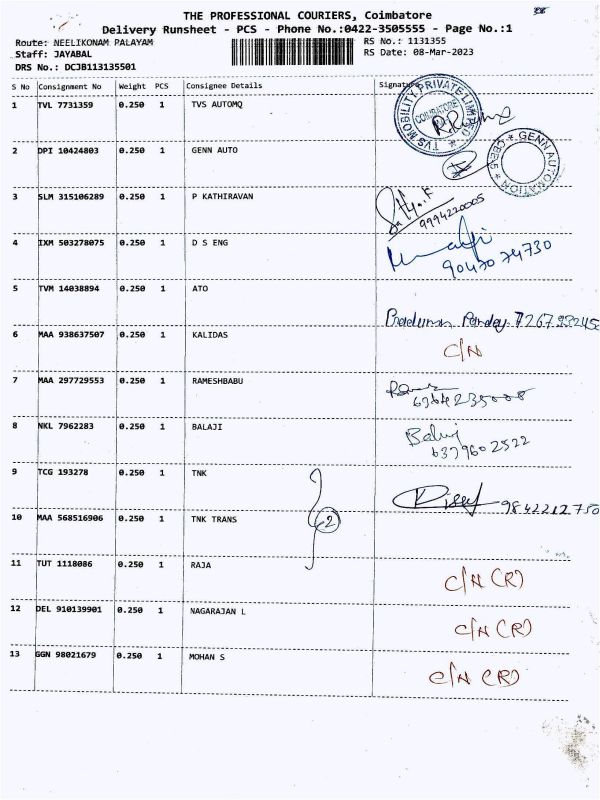 THE PROFESSIONAL COURIERS, Coimbatore
Delivery Runsheet - PCS - Phone No.:0422-3505555 - Page No.:1
Route: NEELIKONAM PALAYAM RS No.: 1131355
Staff: JAYABAL RS Date: 08-Mar-2023
DRS No.: DCJB113135501
S No Consignment No Weight PCS Consignee Details Signature
1 TVL 7731359 0.250 1 TVS AUTOMQ
TVS MOBILITY PRIVATE LIMITED
COIMBATORE
2 DPI 10424803 0.250 1 GENN AUTO
GENN AUTOMATION
3 SLM 315106289 0.250 1 P KATHIRAVAN
9994220005
4 IXM 503278075 0.250 1 D S ENG
90470 74730
5 TVM 14038894 0.250 1 ATO
6 MAA 938637507 0.250 1 KALIDAS C/N
7 MAA 297729553 0.250 1 RAMESHBABU
8 NKL 7962283 0.250 1 BALAJI Balaji
6379602522
9 TCG 193278 0.250 1 TNK
9842212750
10 MAA 568516906 0.250 1 TNK TRANS 2
11 TUT 1118086 0.250 1 RAJA C/N (R)
12 DEL 910139901 0.250 1 NAGARAJAN L C/N (R)
13 GGN 98021679 0.250 1 MOHAN S C/N (R)